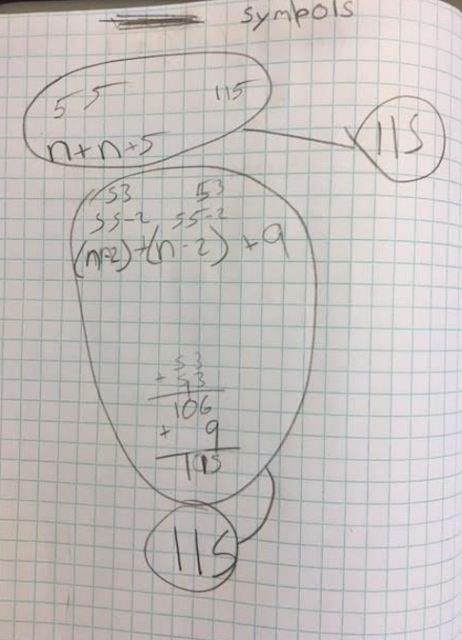 symbols
55 115
n+n+5
115
53 53
55-2 55-2
(n-2)+(n-2)+9
53
+ 53
106
+ 9
115
115